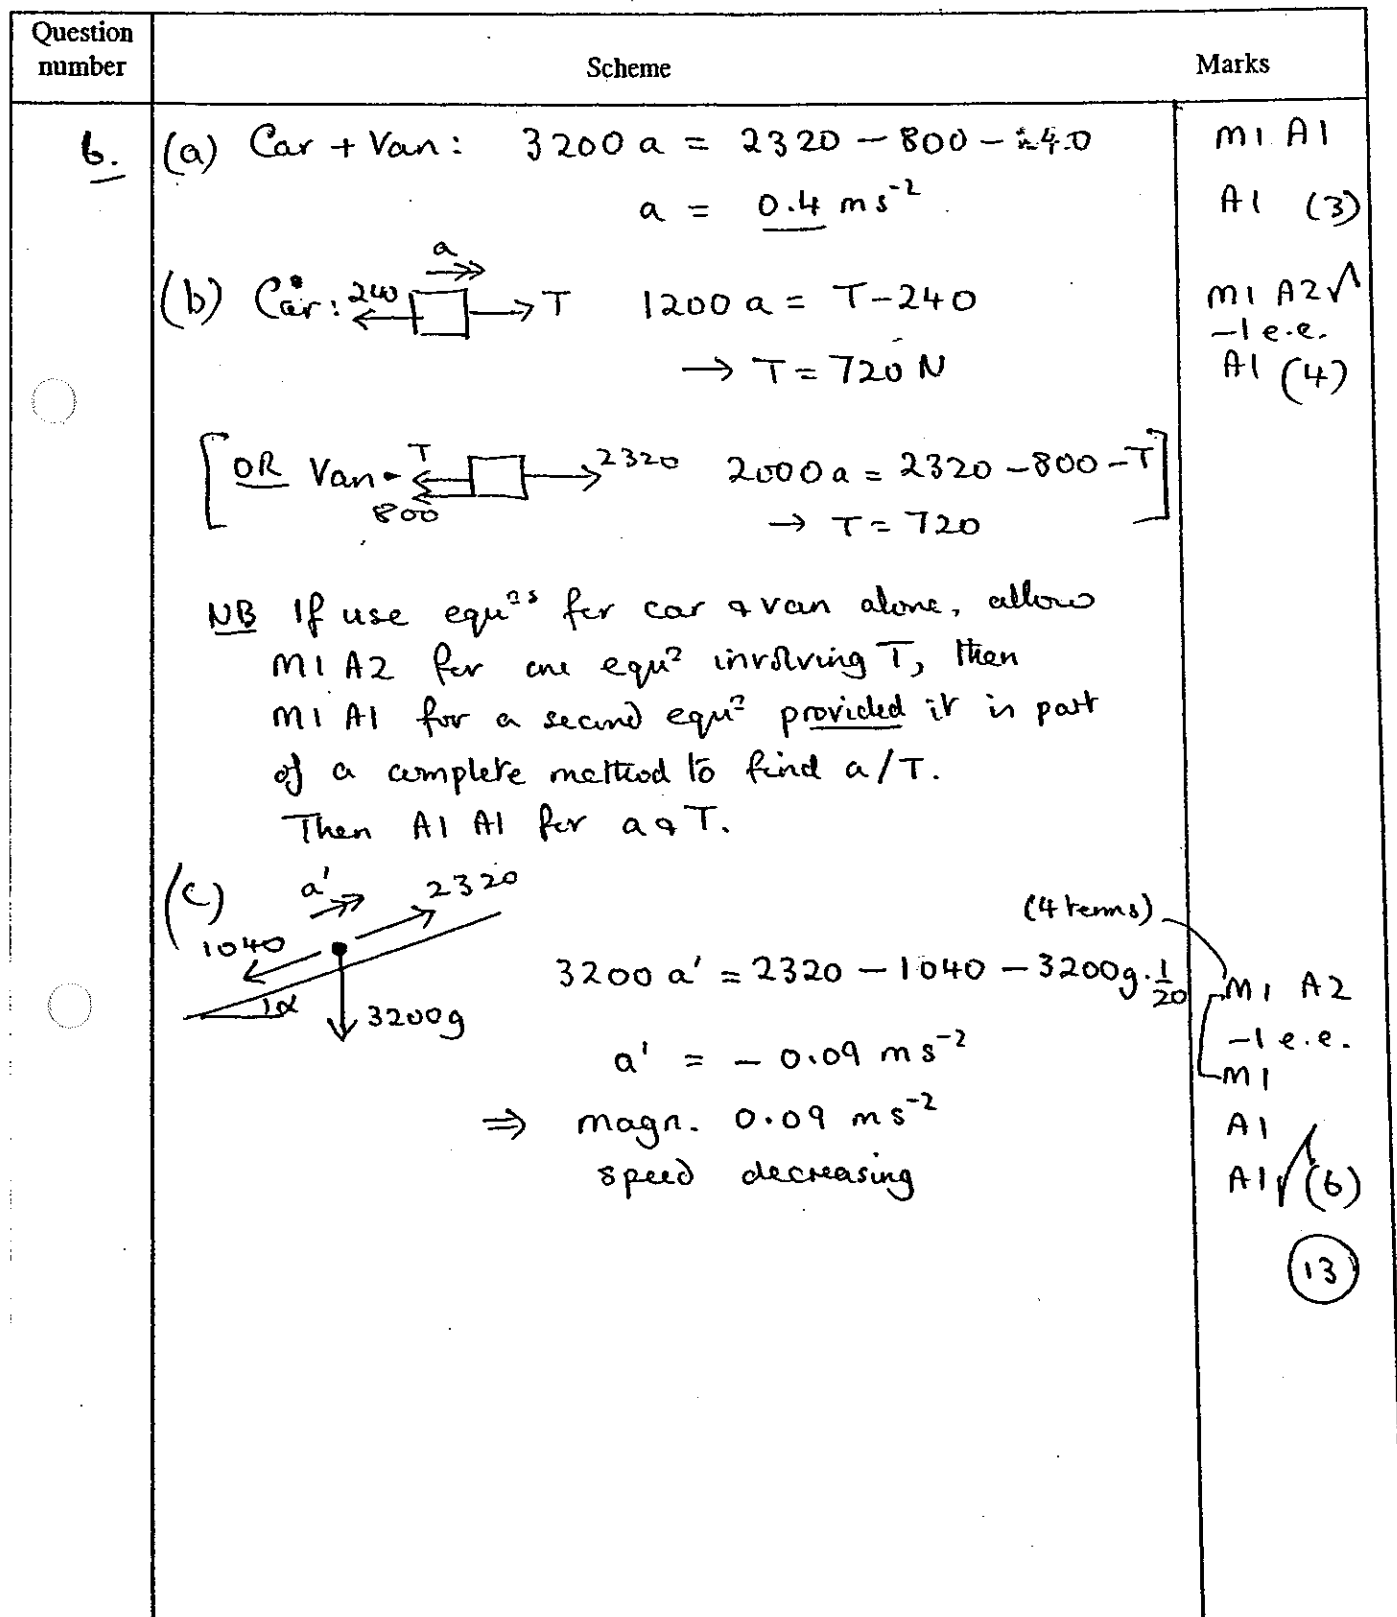 Question number
Scheme
Marks
6.
(a) Car + Van: 3200 a = 2320 – 800 – 240
M1 A1
a = 0.4 ms⁻²
A1 (3)
(b) Car: 240 a T 1200 a = T – 240
M1 A2√
–1 e.e.
→ T = 720 N
A1 (4)
[OR Van T 800 2320 2000 a = 2320 – 800 – T
→ T = 720]
NB If use equⁿˢ for car & van alone, allow
M1 A2 for one equⁿ involving T, then
M1 A1 for a second equⁿ provided it is part
of a complete method to find a/T.
Then A1 A1 for a & T.
(c) a' 2320 1040 α 3200g
(4 terms)
3200 a' = 2320 – 1040 – 3200g.1/20
M1 A2
–1 e.e.
a' = – 0.09 ms⁻²
M1
⇒ magn. 0.09 ms⁻²
A1
speed decreasing
A1√ (6)
13